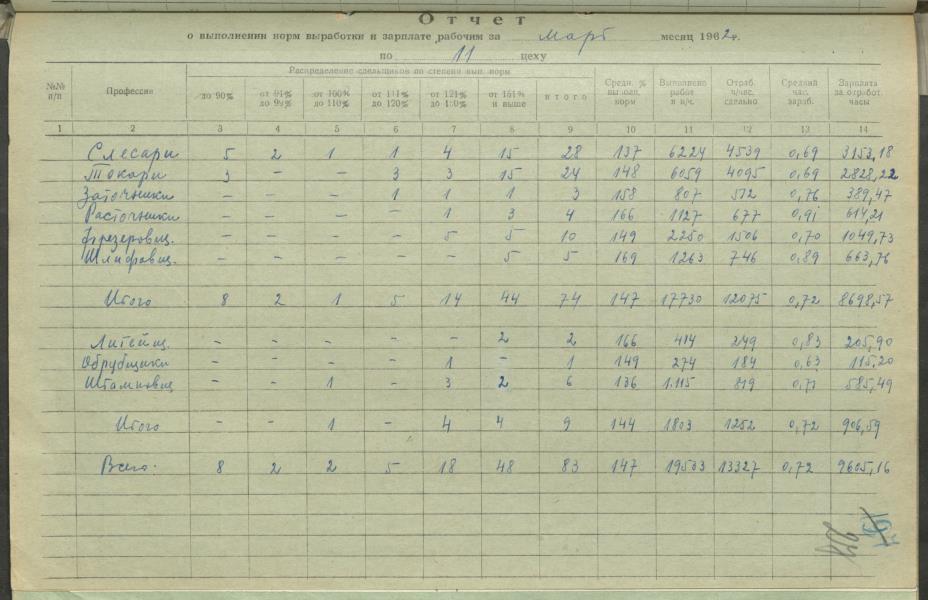 Отчет
о выполнении норм выработки и зарплате рабочим за март месяц 1962 г.
по 11 цеху
№№ п/п Профессии Распределение сдельщиков по степени вып. норм Средн. % выполн. норм Выполнено работ в н/ч. Отраб. ч/час. сдельно Средний час. зараб. Зарплата за отработ. часы
до 90% от 91% до 99% от 100% до 110% от 111% до 120% от 121% до 150% от 151% и выше итого
1 2 3 4 5 6 7 8 9 10 11 12 13 14
Слесари 5 2 1 1 4 15 28 137 6224 4539 0,69 3153,18
Токари 3 – – 3 3 15 24 148 6059 4095 0,69 2828,22
Заточники – – – 1 1 1 3 158 807 512 0,76 389,47
Расточники – – – – 1 3 4 166 1127 677 0,91 614,21
Фрезеровщ. – – – – 5 5 10 149 2250 1506 0,70 1049,73
Шлифовщ. – – – – – 5 5 169 1263 746 0,89 663,76
Итого 8 2 1 5 14 44 74 147 17730 12075 0,72 8698,57
Литейщ. – – – – – 2 2 166 414 249 0,83 205,90
Обрубщики – – – – 1 – 1 149 274 184 0,63 115,20
Штамповщ – – 1 – 3 2 6 136 1.115 819 0,71 585,49
Итого – – 1 – 4 4 9 144 1803 1252 0,72 906,59
Всего. 8 2 2 5 18 48 83 147 19533 13327 0,72 9605,16